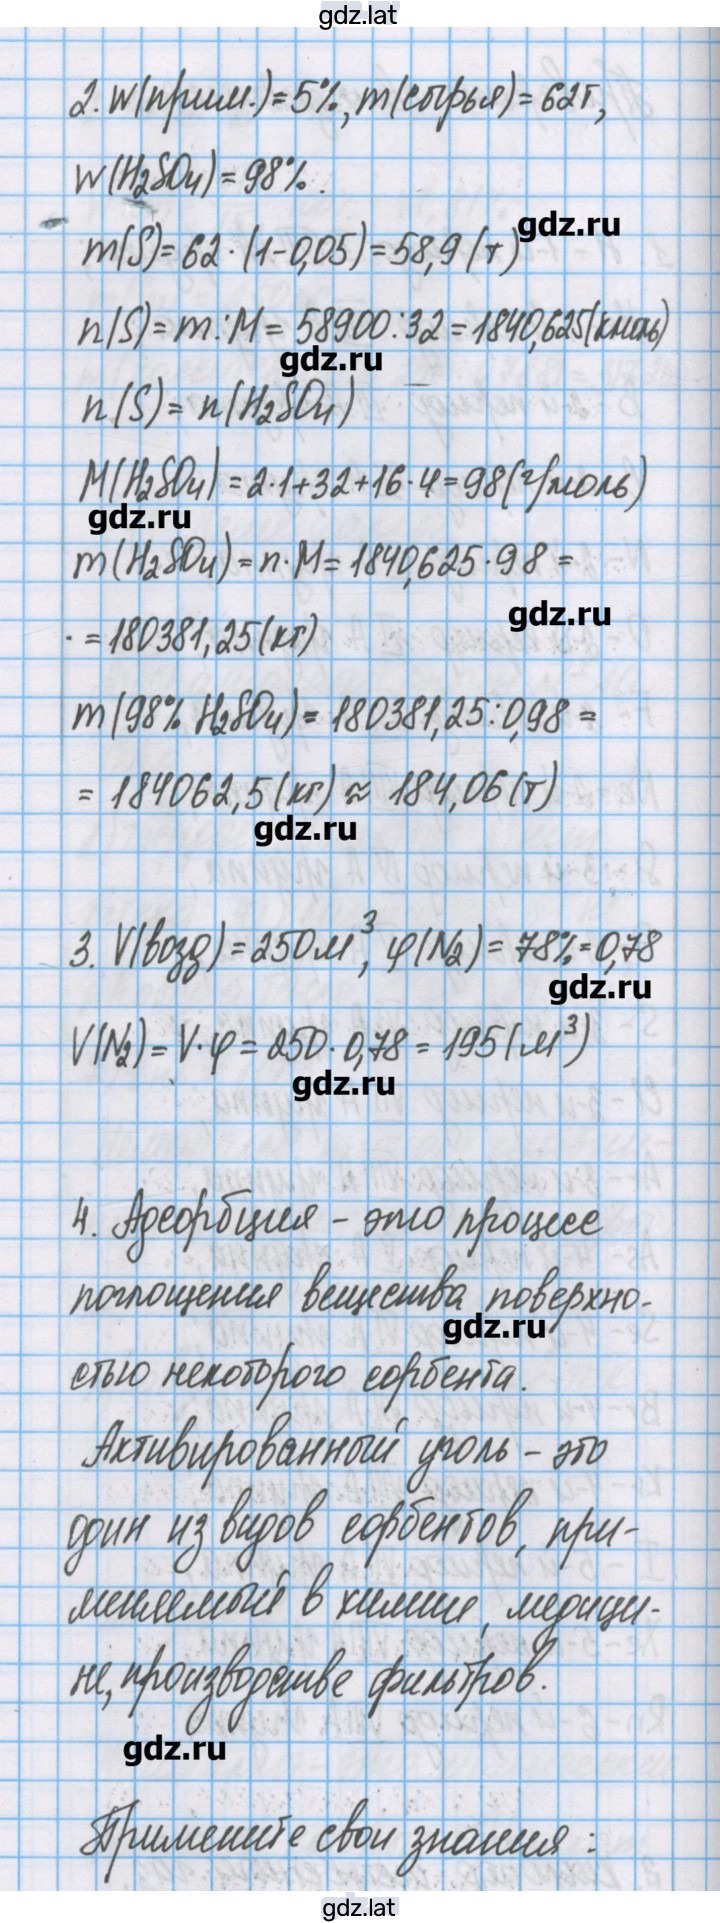 gdz.lat
2. W(прим.)=5%, m(сырья)=62т,
W(H₂SO₄)=98%.
gdz.ru
m(S)=62·(1-0,05)=58,9(т)
n(S)=m:M=58900:32=1840,625(кмоль)
gdz.ru
n(S)=n(H₂SO₄)
M(H₂SO₄)=2·1+32+16·4=98(г/моль)
gdz.ru
m(H₂SO₄)=n·M=1840,625·98=
gdz.ru
=180381,25(кг)
m(98% H₂SO₄)=180381,25:0,98=
=184062,5(кг)≈184,06(т)
gdz.ru
3. V(возд)=250м³, φ(N₂)=78%=0,78
gdz.ru
V(N₂)=V·φ=250·0,78=195(м³)
gdz.ru
4. Адсорбция - это процесс
поглощения вещества поверхно-
gdz.ru
стью некоторого сорбента.
Активированный уголь - это
один из видов сорбентов, при-
меняемый в химии, медици-
не, производстве фильтров.
gdz.ru
Примените свои знания:
gdz.lat